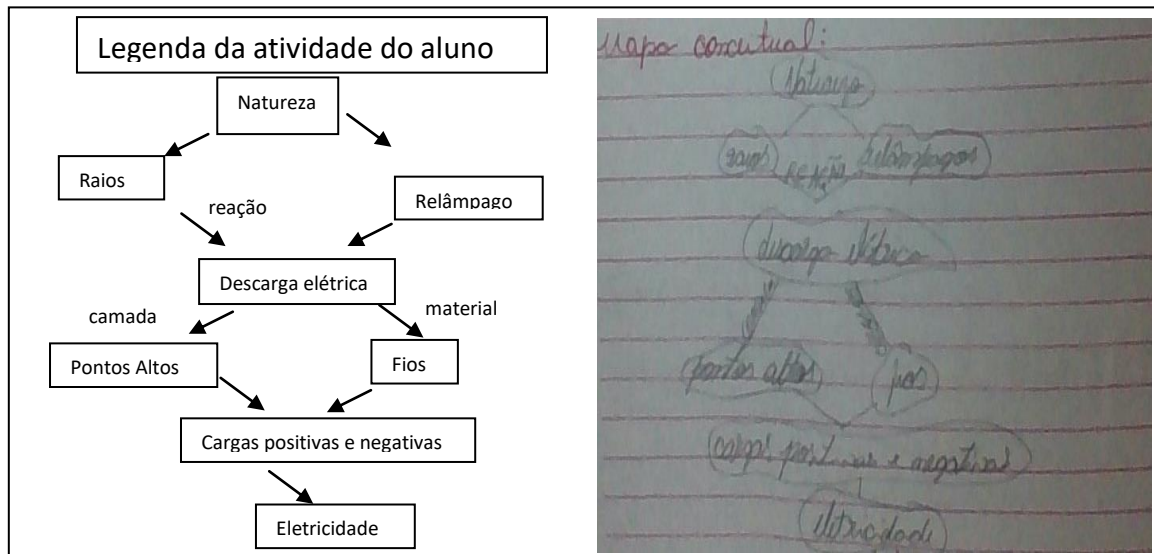 Legenda da atividade do aluno
Natureza
Raios
Relâmpago
reação
Descarga elétrica
camada
material
Pontos Altos
Fios
Cargas positivas e negativas
Eletricidade
Mapa conceitual:
Natureza
raios REAÇÃO relâmpagos
descarga elétrica
pontos altos fios
cargas positivas e negativas
eletricidade